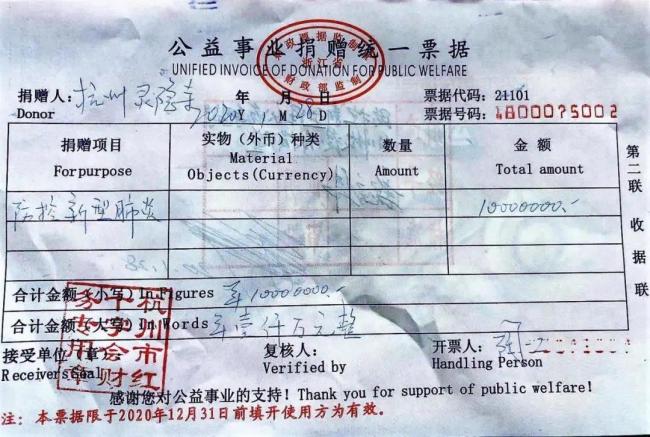 公益事业捐赠统一票据
UNIFIED INVOICE OF DONATION FOR PUBLIC WELFARE
财政部监制
浙江省
捐赠人:杭州灵隐寺 2020年1月28日 票据代码:21101
Donor Y M D 票据号码:4800075002
捐赠项目 实物(外币)种类 数量 金额
For purpose Material Objects(Currency) Amount Total amount
防控新型肺炎 10000000.-
第二联 收据联
合计金额(小写)In Figures ¥10000000.-
合计金额(大写)In Words ¥壹仟万元整
接受单位(章): 复核人: 开票人:
Receiver's Seal Verified by Handling Person
杭州市红十字会财务专用章
感谢您对公益事业的支持!Thank you for support of public welfare!
注:本票据限于2020年12月31日前填开使用方为有效。